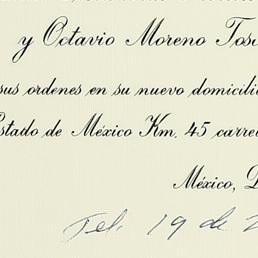 y Octavio Moreno Tosc
sus ordenes en su nuevo domicilio
Estado de México Km. 45 carre
México, D
Feb. 19 de